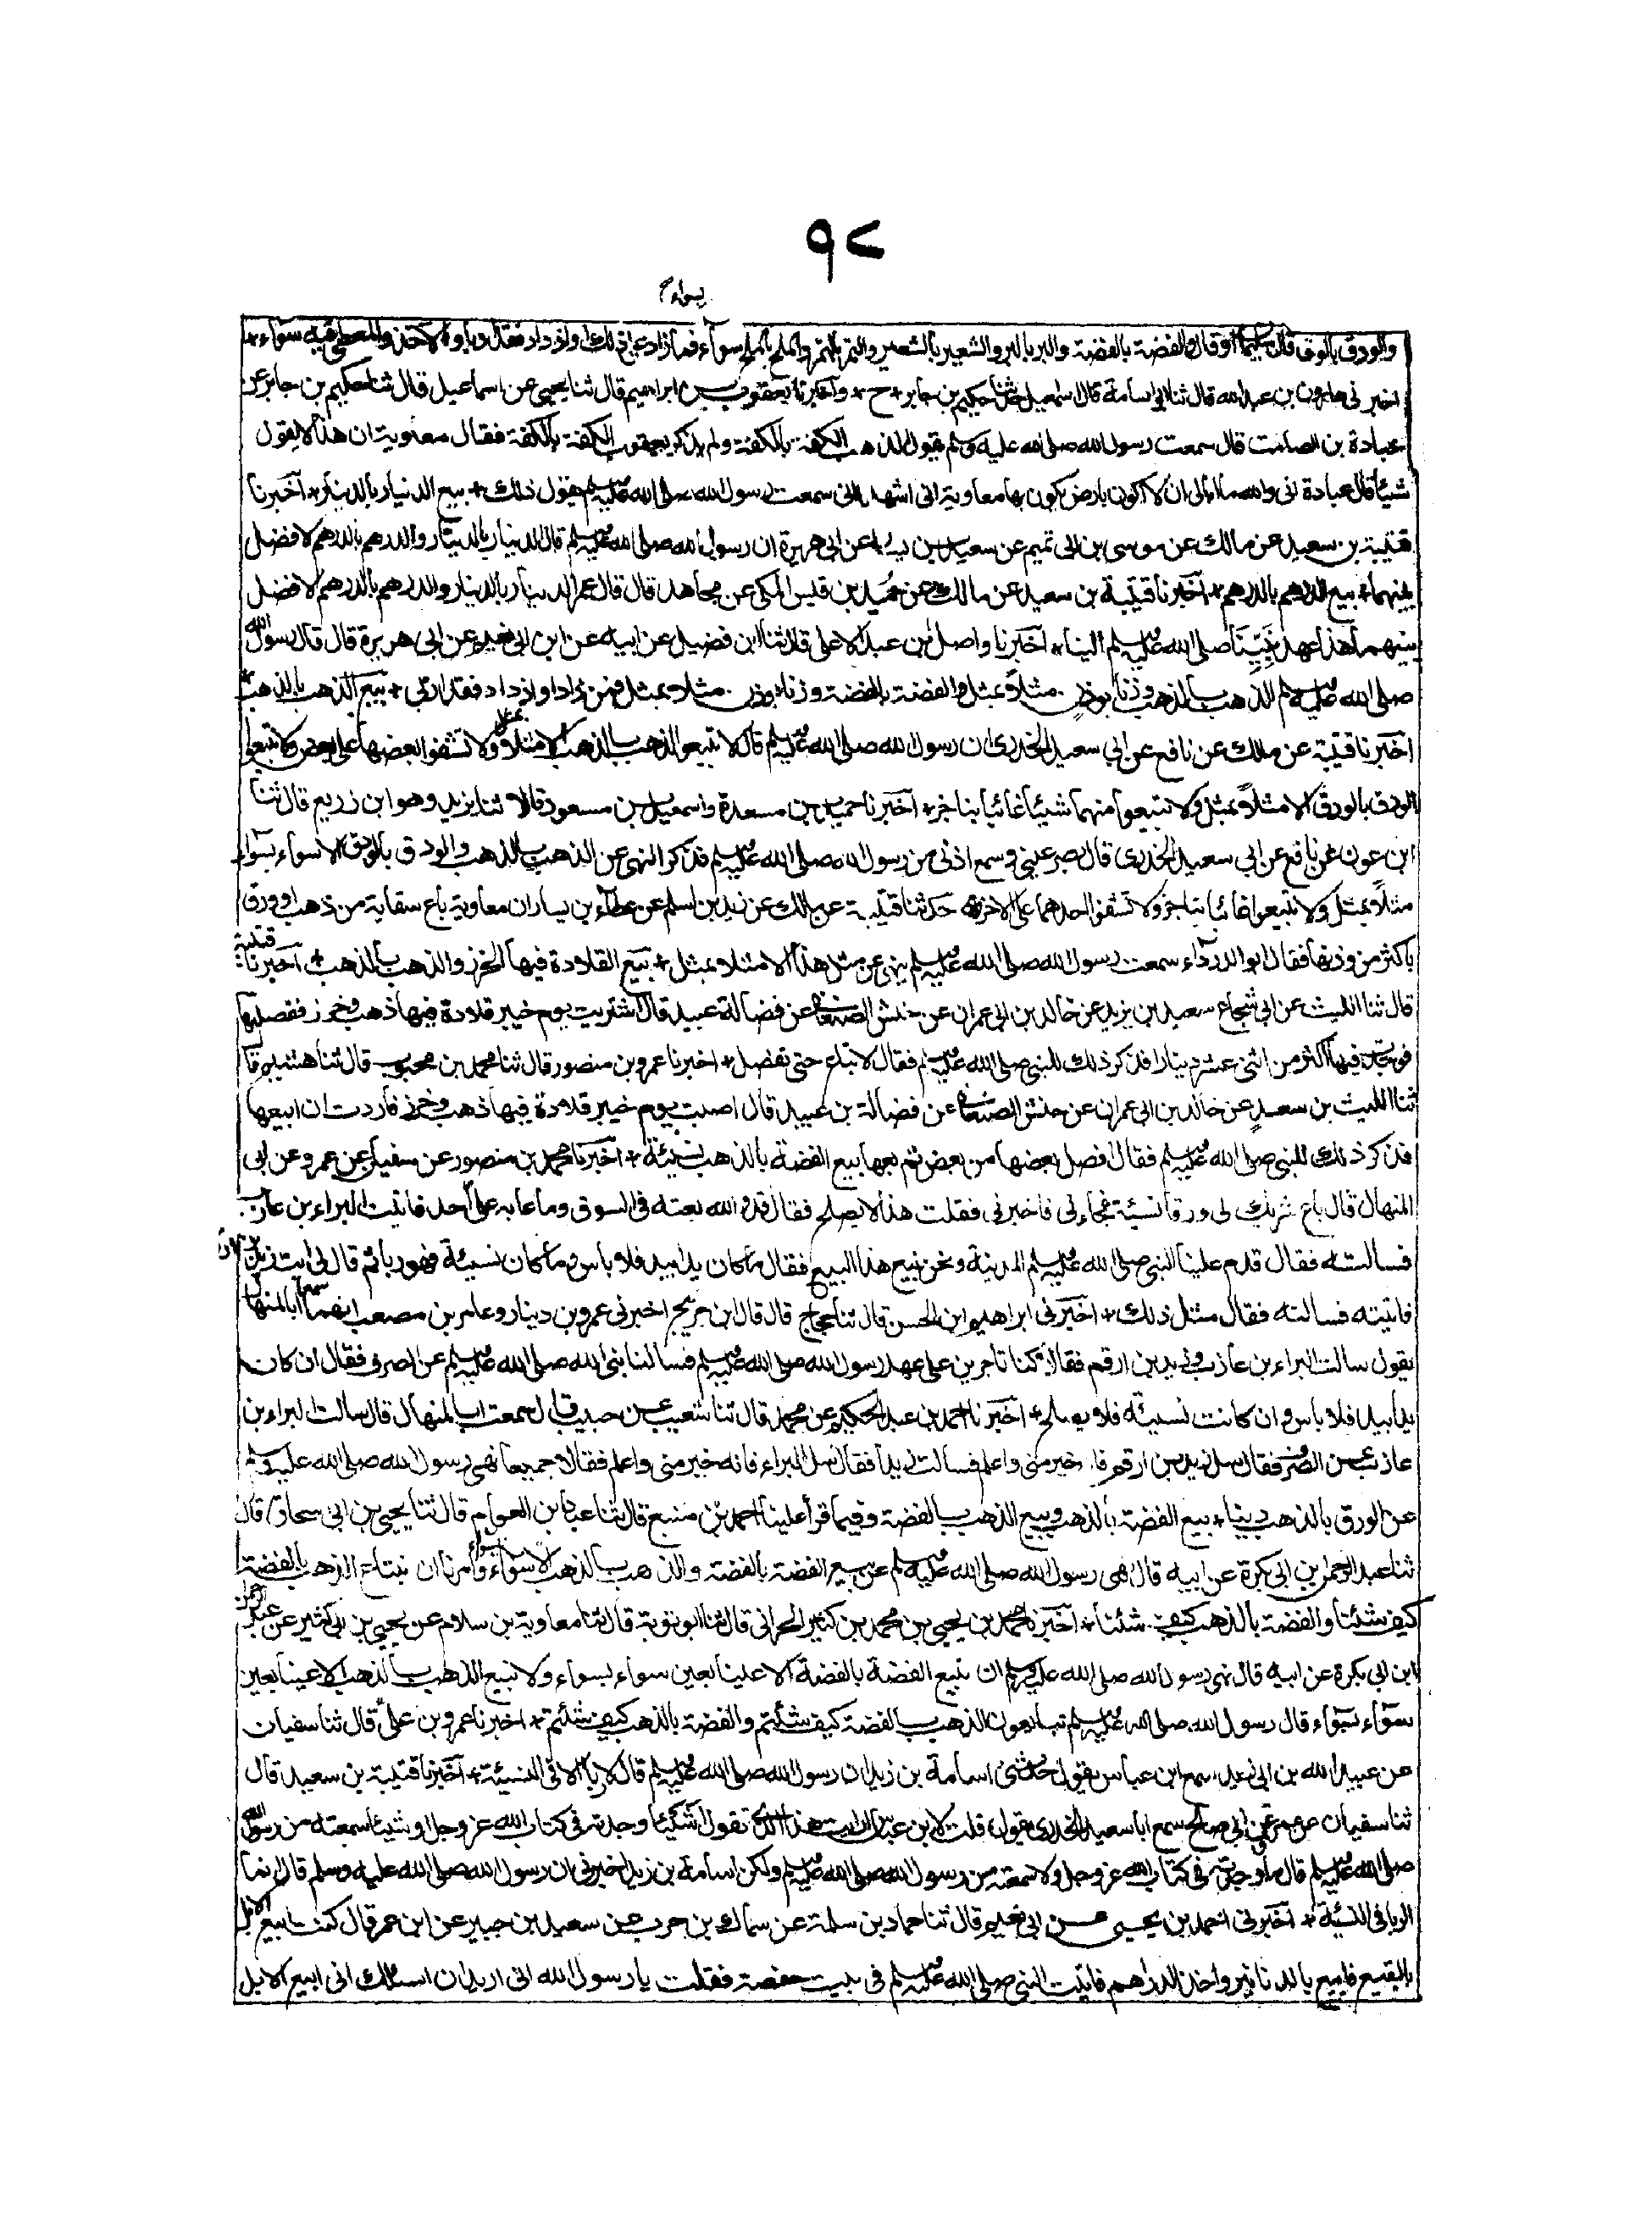 ٩٢
بسواء
والورق بالورق قال سليمان او قال والفضة بالفضة والبر بالبر والشعير بالشعير والتمر بالتمر والملح بالملح سواء فمن زاد على ذلك او ازداد فقد اربى الآخذ والمعطى فيه سواء
اخبرنى هارون بن عبد الله قال ثنا ابو اسامة قال اسمعيل حدثنا حكيم بن جابر ح واخبرنا يعقوب بن ابراهيم قال ثنا يحيى عن اسماعيل قال ثنا حكيم بن جابر عن
عبادة بن الصامت قال سمعت رسول الله صلى الله عليه وسلم يقول الذهب الكفة بالكفة ولم يذكر يعقوب الكفة بالكفة فقال معوية ان هذا لا يقول
شيئا قال عبادة انى والله ما ابالى ان لا اكون بارض يكون بها معاوية انى اشهد انى سمعت رسول الله صلى الله عليه وسلم يقول ذلك بيع الدنيار بالدينار اخبرنا
قتيبة بن سعيد عن مالك عن موسى بن ابى تميم عن سعيد بن يسار عن ابى هريرة ان رسول الله صلى الله عليه وسلم قال الدنيار بالدينار والدرهم بالدرهم لا فضل
بينهما بيع الدرهم بالدرهم اخبرنا قتيبة بن سعيد عن مالك عن حميد بن قيس المكى عن مجاهد قال قال عمر الدينار بالدينار والدرهم بالدرهم لا فضل
بينهما هذا عهد نبينا صلى الله عليه وسلم الينا اخبرنا واصل بن عبد الاعلى قال ثنا ابن فضيل عن ابيه عن ابن ابى نعيم عن ابى هريرة قال قال رسول الله
صلى الله عليه وسلم الذهب بالذهب وزنا بوزن مثلا بمثل والفضة بالفضة وزنا بوزن مثلا بمثل فمن زاد او ازداد فقد اربى بيع الذهب بالذهب
اخبرنا قتيبة عن ملك عن نافع عن ابى سعيد الخدرى ان رسول الله صلى الله عليه وسلم قال لا تبيعوا الذهب بالذهب الا مثلا بمثل ولا تشفوا بعضها على بعض ولا تبيعوا
الورق بالورق الا مثلا بمثل ولا تبيعوا منهما شيئا غائبا بناجز اخبرنا حميد بن مسعدة واسمعيل بن مسعود قالا ثنا يزيد وهو ابن زريع قال ثنا
ابن عون عن نافع عن ابى سعيد الخدرى قال بصر عينى وسمع اذنى من رسول الله صلى الله عليه وسلم فذكر النهى عن الذهب بالذهب والورق بالورق الا سواء بسواء
مثلا بمثل ولا تبيعوا غائبا بناجز ولا تشفوا احدهما على الاخر حدثنا قتيبة عن مالك عن زيد بن اسلم عن عطاء بن يسار ان معاوية باع سقاية من ذهب او ورق
باكثر من وزنها فقال ابو الدرداء سمعت رسول الله صلى الله عليه وسلم ينهى عن مثل هذا الا مثلا بمثل بيع القلادة فيها الخرز والذهب بالذهب اخبرنا قتيبة
قال ثنا الليث عن ابى شجاع سعيد بن يزيد عن خالد بن ابى عمران عن حنش الصنعانى عن فضالة بن عبيد قال اشتريت يوم خيبر قلادة فيها ذهب وخرز ففصلتها
فوجدت فيها اكثر من اثنى عشر دينارا فذكر ذلك للنبى صلى الله عليه وسلم فقال لا تباع حتى تفصل اخبرنا عمرو بن منصور قال ثنا محمد بن محبوب قال ثنا هشيم قا
ثنا الليث بن سعد عن خالد بن ابى عمران عن حنش الصنعانى عن فضالة بن عبيد قال اصبت يوم خيبر قلادة فيها ذهب وخرز فاردت ان ابيعها
فذكر ذلك للنبى صلى الله عليه وسلم فقال افصل بعضها من بعض ثم بعها بيع الفضة بالذهب نسيئة اخبرنا محمد بن منصور عن سفيان عن عمرو عن ابى
المنهال قال باع شريك لى ورقا نسيئة فجاءنى فاخبرنى فقلت هذا لا يصلح فقال قد والله بعته فى السوق وما عابه على احد فاتيت البراء بن عازب
فسالته فقال قدم علينا النبى صلى الله عليه وسلم المدينة ونحن نبيع هذا البيع فقال ما كان يدا بيد فلا باس وما كان نسيئة فهو ربا ثم قال لى ايت زيد بن
فاتيته فسالته فقال مثل ذلك اخبرنى ابراهيم ابن الحسن قال ثنا حجاج قال قال ابن جريج اخبرنى عمرو بن دينار وعامر بن مصعب انهما سمعا ابا المنهال
يقول سالت البراء بن عازب وزيد بن ارقم فقالا كنا تاجرين على عهد رسول الله صلى الله عليه وسلم فسالنا نبى الله صلى الله عليه وسلم عن الصرف فقال ان كان
يدا بيد فلا باس وان كانت نسيئة فلا يصلح اخبرنا احمد بن عبد الله بن الحكم عن محمد قال ثنا شعبة عن حبيب قال سمعت ابا المنهال قال سالت البراء بن
عازب عن الصرف فقال سل زيد بن ارقم فانه خير منى واعلم فسالت زيدا فقال سل البراء فانه خير منى واعلم فقالا جميعا نهى رسول الله صلى الله عليه وسلم
عن الورق بالذهب دينا بيع الفضة بالذهب وبيع الذهب بالفضة وفيما قرا علينا احمد بن منيع قال ثنا عباد بن العوام قال ثنا يحيى بن ابى اسحاق قال
ثنا عبد الرحمن بن ابى بكرة عن ابيه قال نهى رسول الله صلى الله عليه وسلم عن بيع الفضة بالفضة والذهب بالذهب الا سواء بسواء وامرنا ان نبتاع الذهب بالفضة
كيف شئنا والفضة بالذهب كيف شئنا اخبرنا محمد بن يحيى بن محمد بن كثير الحرانى قال ثنا ابو توبة قال ثنا معاوية بن سلام عن يحيى بن ابى كثير عن عبد الرحمن
ابن ابى بكرة عن ابيه قال نهى رسول الله صلى الله عليه وسلم ان نبيع الفضة بالفضة الا عينا بعين سواء بسواء ولا نبيع الذهب بالذهب الا عينا بعين
سواء بسواء قال رسول الله صلى الله عليه وسلم تبايعون الذهب بالفضة كيف شئتم والفضة بالذهب كيف شئتم اخبرنا عمرو بن على قال ثنا سفيان
عن عبيد الله بن ابى يزيد سمع ابن عباس يقول حدثنى اسامة بن زيد ان رسول الله صلى الله عليه وسلم قال لا ربا الا فى النسيئة اخبرنا قتيبة بن سعيد قال
ثنا سفيان عن عمرو عن ابى صالح سمع ابا سعيد الخدرى يقول قلت لابن عباس ارايت هذا الذى تقول اشيئا وجدته فى كتاب الله عز وجل او شيئا سمعته من رسول الله
صلى الله عليه وسلم قال ما وجدته فى كتاب الله عز وجل ولا سمعته من رسول الله صلى الله عليه وسلم ولكن اسامة بن زيد اخبرنى ان رسول الله صلى الله عليه وسلم قال انما
الربا فى النسيئة اخبرنى احمد بن يحيى عن ابى نعيم قال ثنا حماد بن سلمة عن سماك بن حرب عن سعيد بن جبير عن ابن عمر قال كنت ابيع الابل
بالبقيع فابيع بالدنانير واخذ الدراهم فاتيت النبى صلى الله عليه وسلم فى بيت حفصة فقلت يا رسول الله انى اريد ان اسئلك انى ابيع الابل